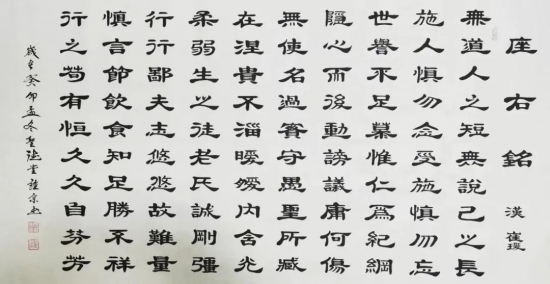 座右銘 漢 崔瑗
無道人之短無說己之長
施人慎勿念受施慎勿忘
世譽不足慕惟仁為紀綱
隱心而後動謗議庸何傷
無使名過實守愚聖所臧
在涅貴不淄曖曖內含光
柔弱生之徒老氏誡剛彊
行行鄙夫志悠悠故難量
慎言節飲食知足勝不祥
行之苟有恒久久自芬芳
歲在癸卯孟冬